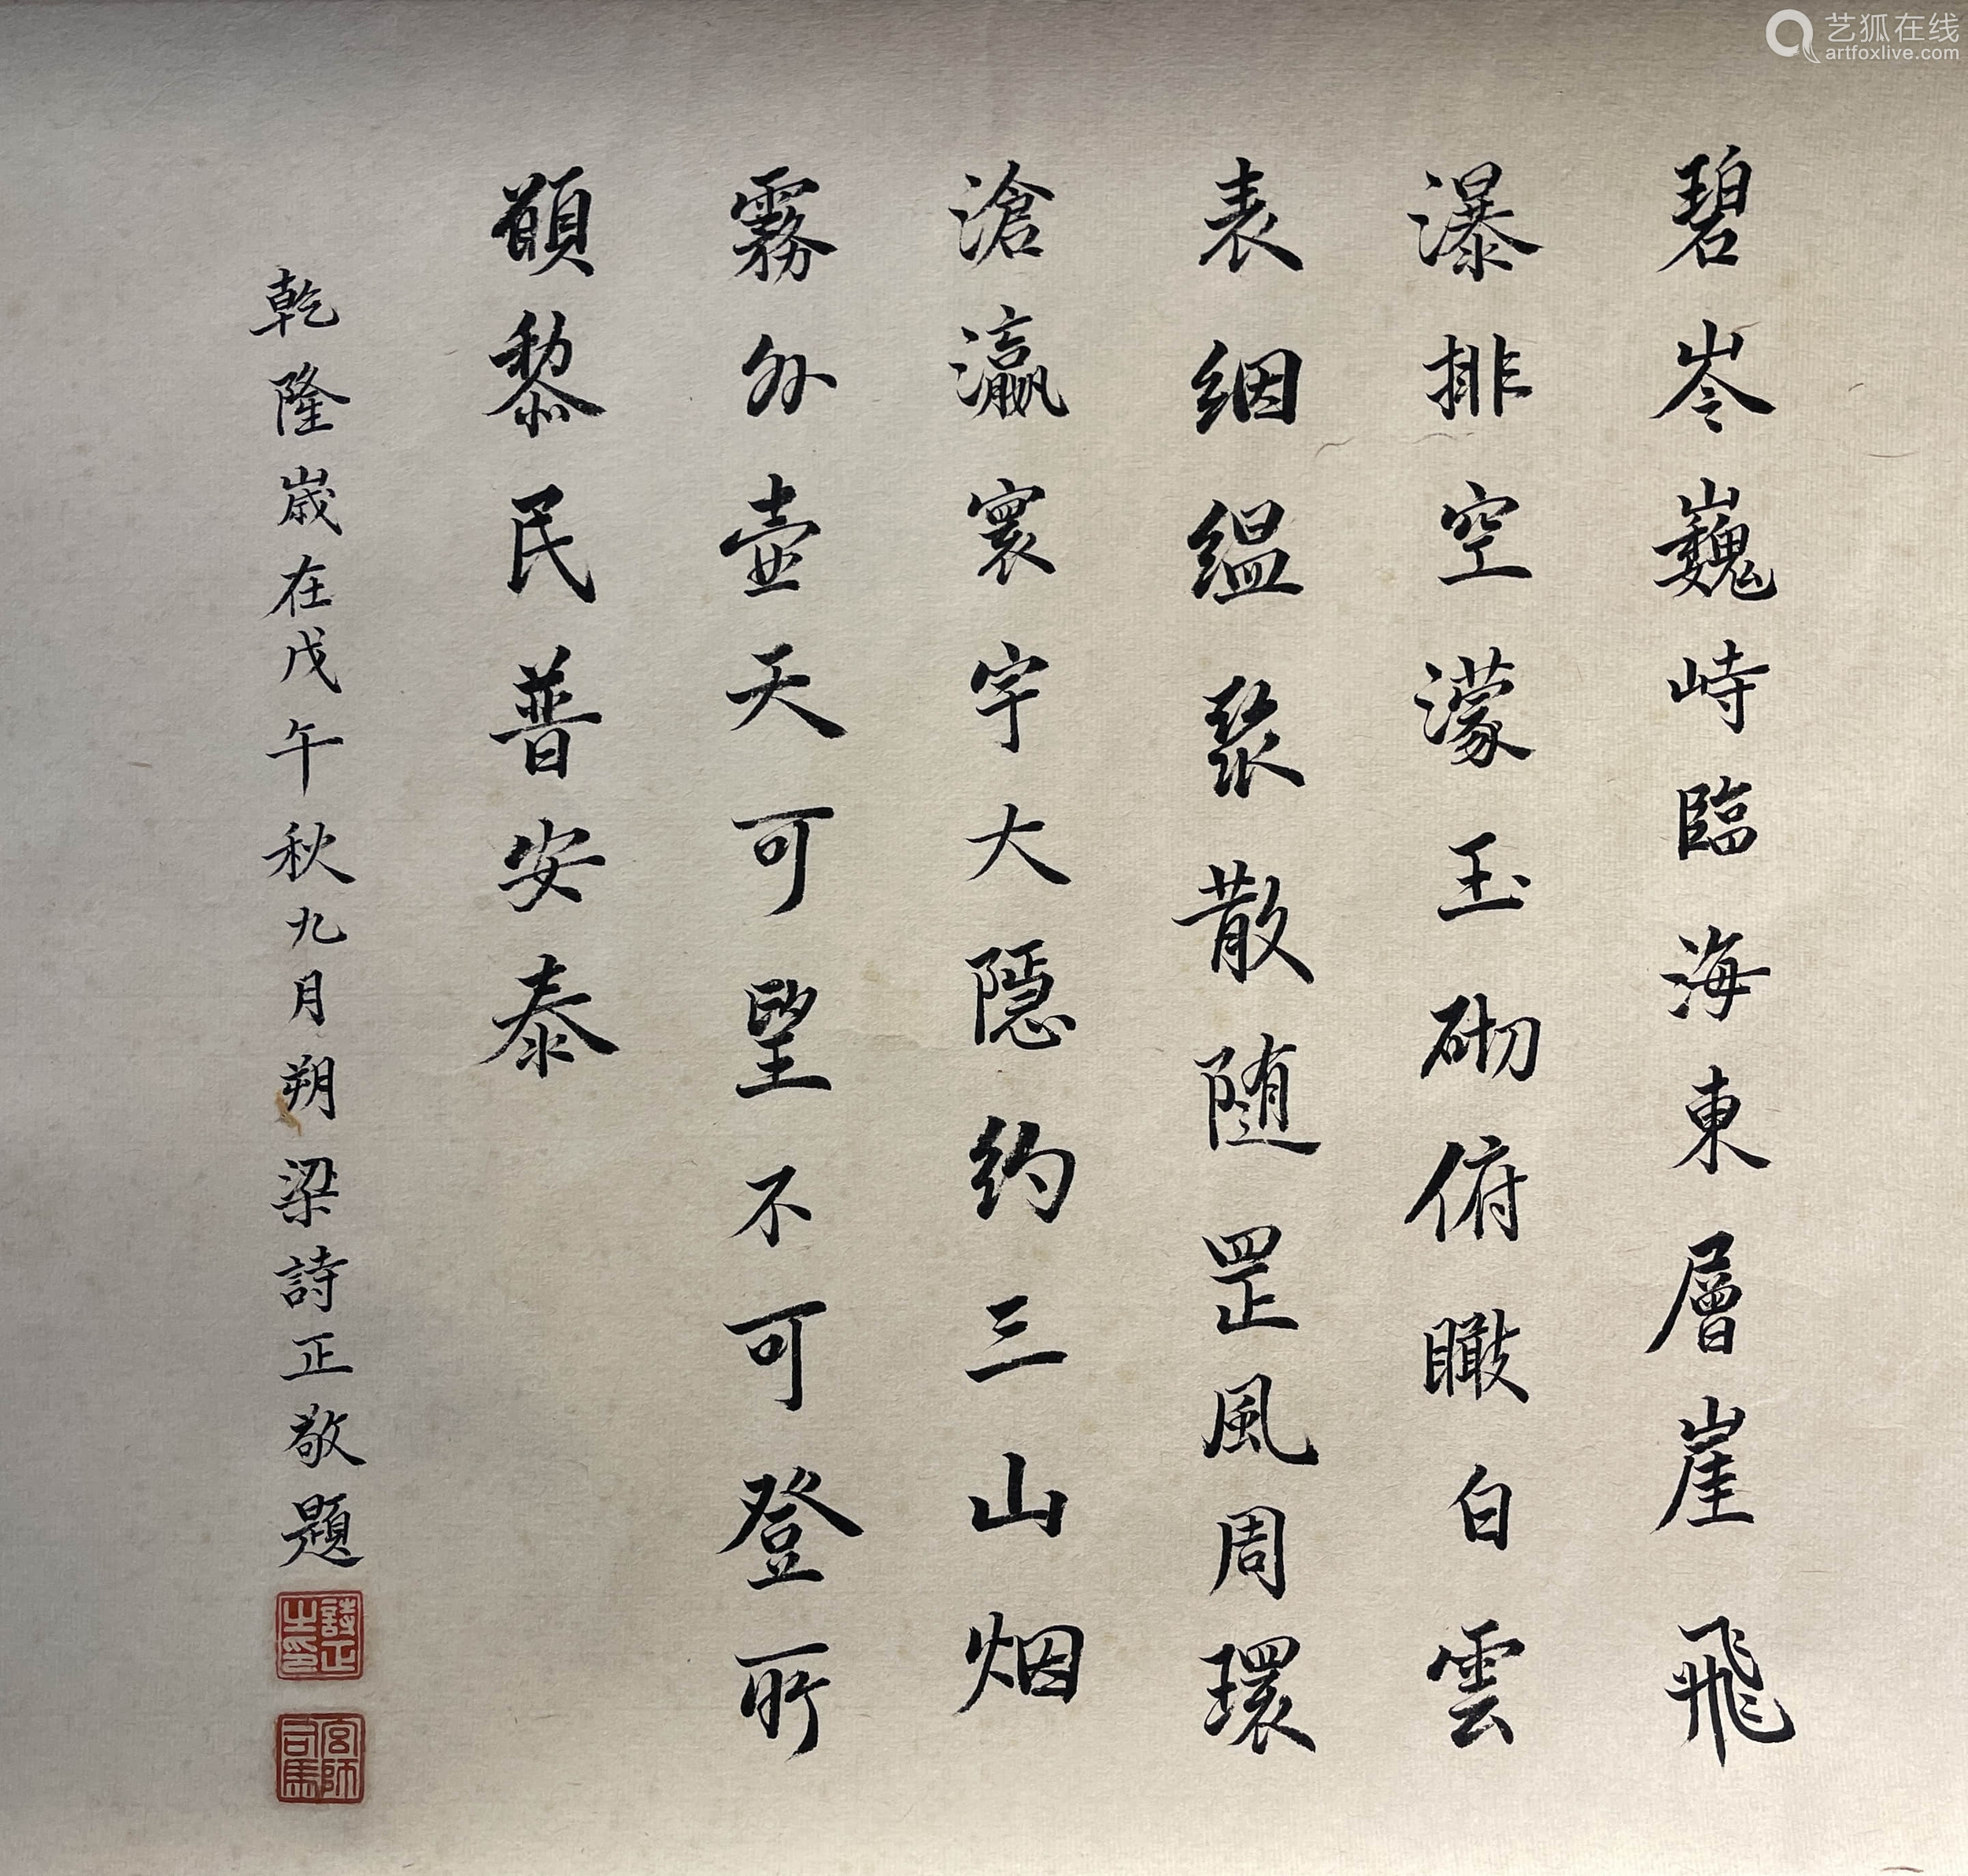 碧岑巍峙臨海東層崖飛
瀑排空濛玉砌俯瞰白雲
表絪緼聚散随罡風周環
滄瀛寰宇大隱約三山烟
霧外壺天可望不可登所
願黎民普安泰
乾隆歲在戊午秋九月朔梁詩正敬題
詩正之印
宮師司馬
艺狐在线
artfoxlive.com